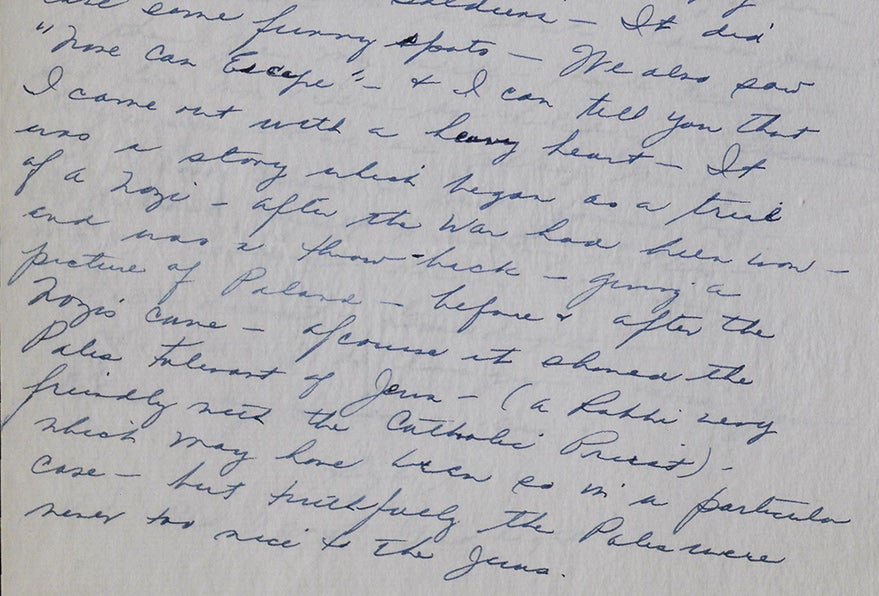 soldiers — It did
some funny spots — We also saw
"None can Escape" — & I can tell you that
I came out with a heavy heart — It
was a story which began as a trial
of a Nazi — after the War had been won —
and was a throw-back — giving a
picture of Poland — before & after the
Nazis came — ofcourse it showed the
Poles tolerant of Jews — (a Rabbi very
friendly with the Catholic Priest) —
which may have been so in a particular
case — but truthfully the Poles were
never too nice to the Jews.